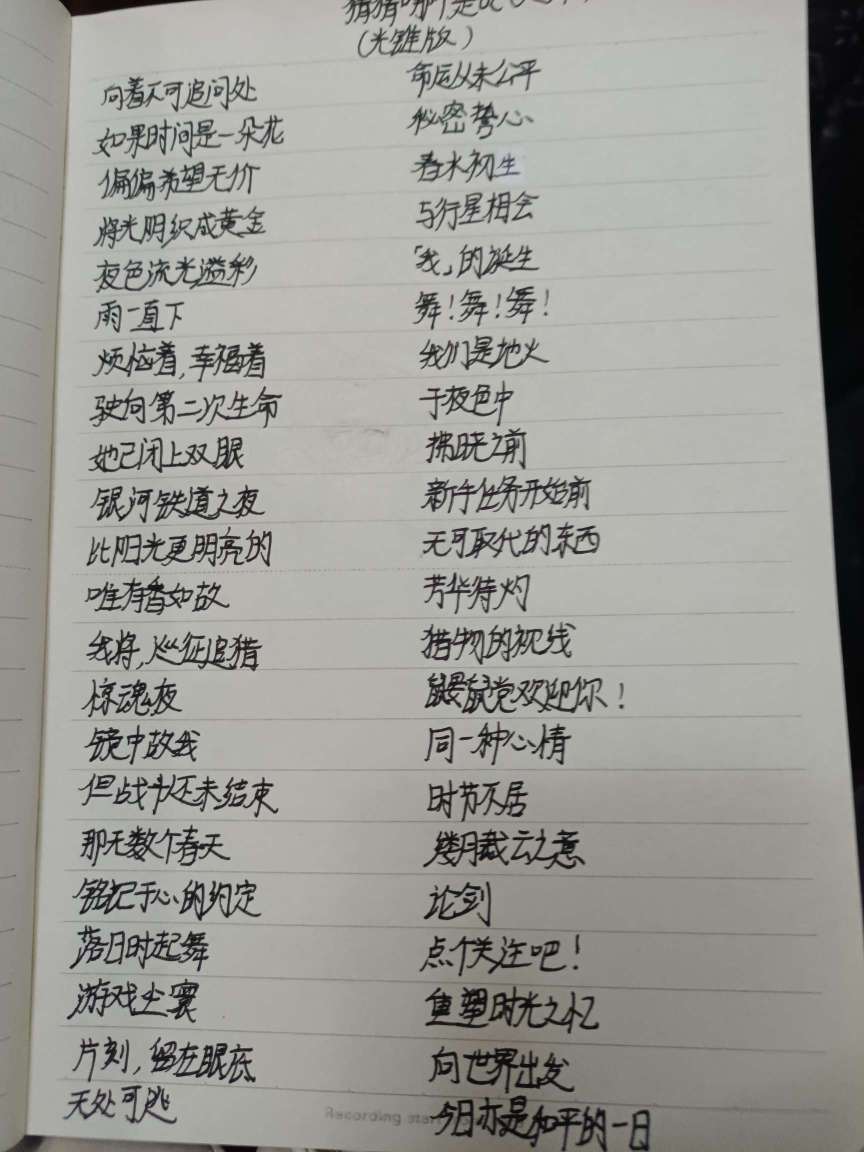 猜猜哪个是
(光锥版)
向着不可追问处
如果时间是一朵花
偏偏希望无价
将光阴织成黄金
夜色流光溢彩
雨一直下
烦恼着,幸福着
驶向第二次生命
她已闭上双眼
银河铁道之夜
比阳光更明亮的
唯有香如故
我将,巡征追猎
惊魂夜
镜中故我
但战斗还未结束
那无数个春天
铭记于心的约定
落日时起舞
游戏尘寰
片刻,留在眼底
无处可逃
命运从未公平
秘密誓心
春水初生
与行星相会
「我」的诞生
舞!舞!舞!
我们是地火
于夜色中
拂晓之前
新手任务开始前
无可取代的东西
芳华待灼
猎物的视线
鼹鼠党欢迎你!
同一种心情
时节不居
镂月裁云之意
论剑
点个关注吧!
重塑时光之忆
向世界出发
今日亦是和平的一日
Recording